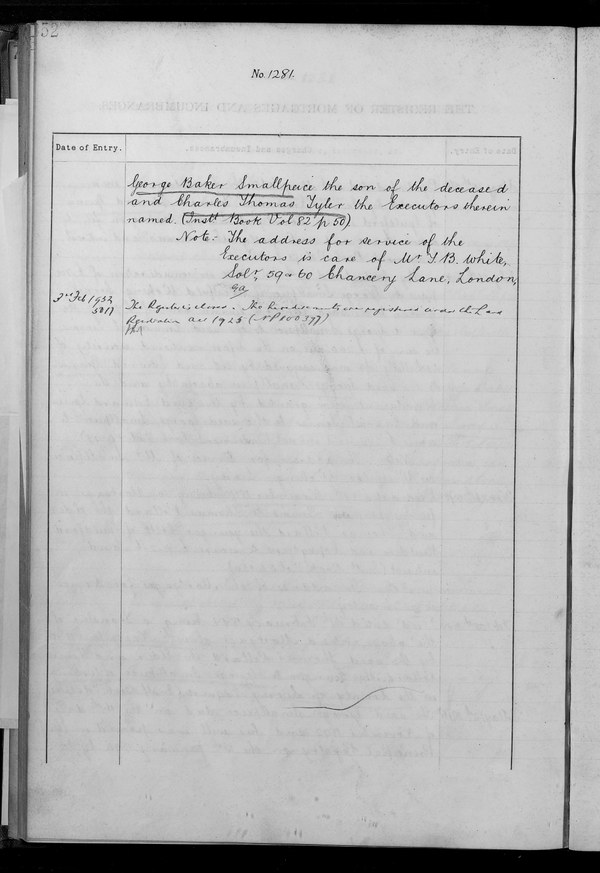 52
No. 1281.
Date of Entry.
George Baker Smallpeice the son of the deceased
and Charles Thomas Tyler the Executors therein
named. (Instt Book Vol 82 p 50)
Note:- The address for service of the
Executors is care of Mr T. B. White,
Solr, 59 & 60 Chancery Lane, London,
3rd Feb 1932
The Register is closed. The Hereditaments are registered under the Land
Registration Act 1925 (